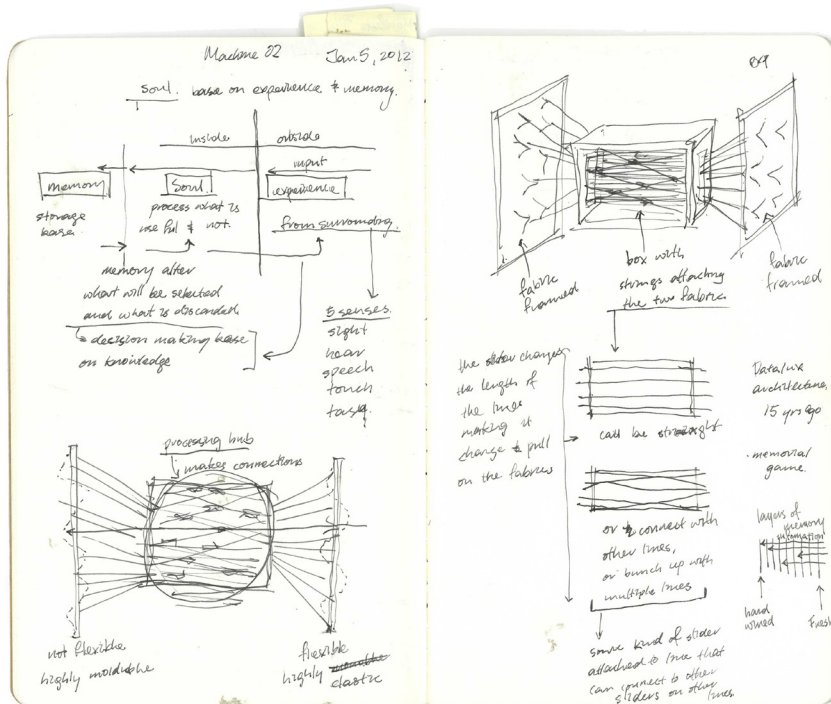 Machine 02
Jan 5, 2012
soul. base on experience & memory.
inside
outside
input
memory
soul
experience
storage
base
process what is
use ful & not.
from surrounding.
memory alter
what will be selected
and what is discarded
decision making base
on knowledge
5 senses.
sight
hear
speech
touch
taste
processing hub
makes connections
not flexible
highly moldable
flexible
highly
elastic
fabric
framed
box with
strings attaching
the two fabric
fabric
framed
the changes
the length of
the lines
making it
change & pull
on the fabrics
call be straight
or connect with
other lines,
or bunch up with
multiple lines
some kind of slider
attached to line that
can connect to other
sliders on other lines
architecture
15 yrs ago
memorial
game.
layers of
memory
hard
wired
Fresh